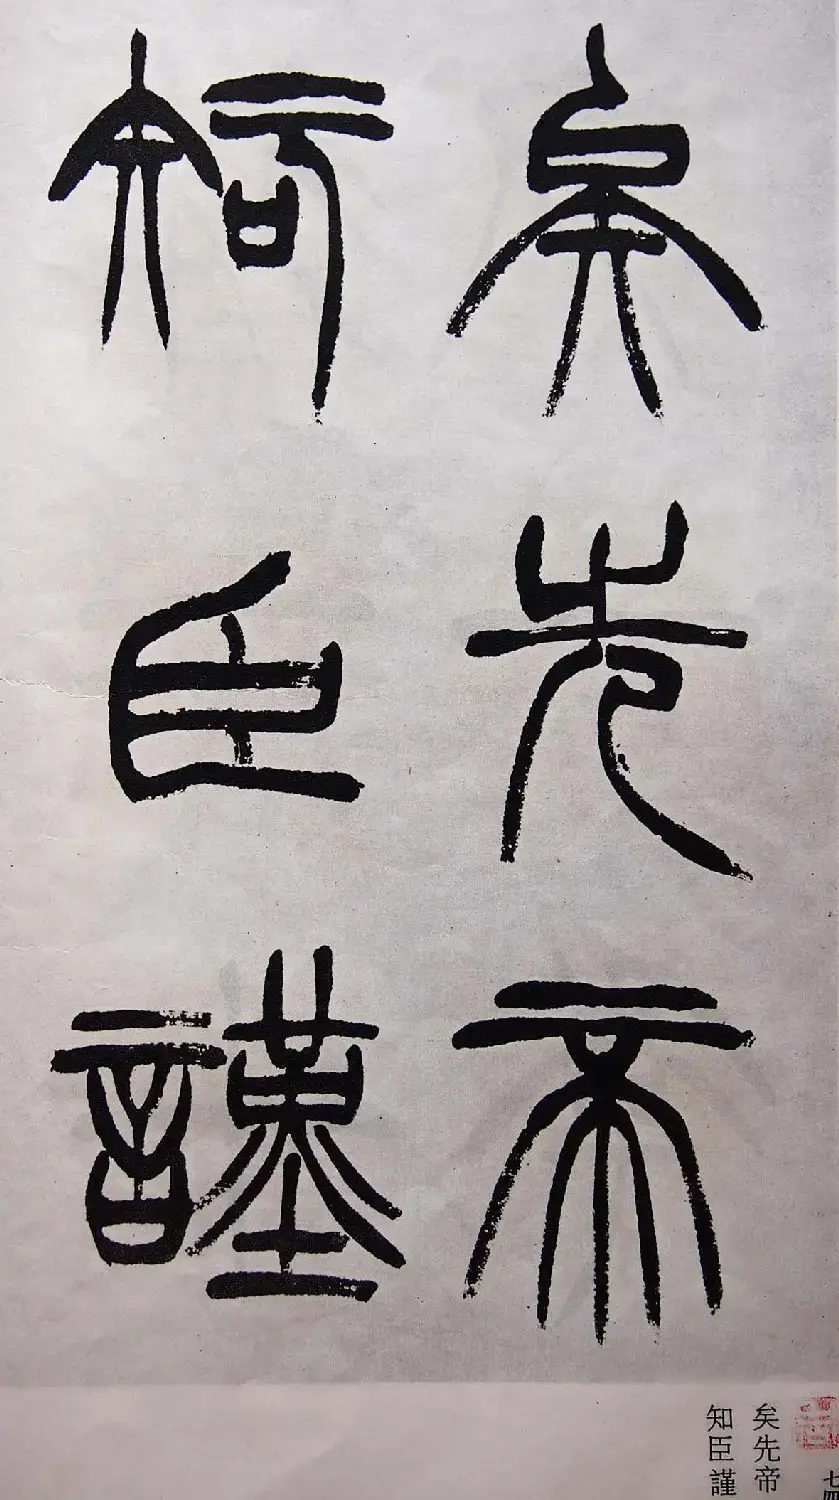 矣先帝
知臣謹
矣先帝
知臣謹